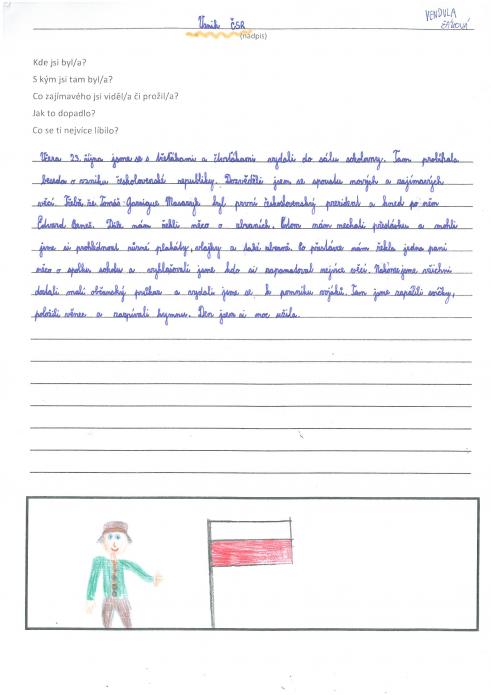 Vznik ČSR
VENDULA
(nadpis)
Kde jsi byl/a?
S kým jsi tam byl/a?
Co zajímavého jsi viděl/a či prožil/a?
Jak to dopadlo?
Co se ti nejvíce líbilo?
Včera 23. října jsme se s třeťákami a čtvrťákami vydali do sálu sokolovny. Tam probíhala
beseda o vzniku československé republiky. Dozvěděli jsem se spoustu nových a zajímavých
věcí. Třeba že Tomáš Garrigue Masaryk byl první československý prezident a hned po něm
Edvard Beneš. Děti nám řekli něco o zbraních. Potom nám nechali přestávku a mohli
jsme si prohlédnout různé plakáty, vlajky a také zbraně. Po přestávce nám řekla jedna paní
něco o spolku sokolu a vyhlašovali jsme kdo si zapamatoval nejvíce věcí. Nakonec jsme všichni
dostali malí občanský průkaz a vydali jsme se k pomníku vojáků. Tam jsme zapálili svíčky,
položili věnec a zazpívali hymnu. Den jsem si moc užila.